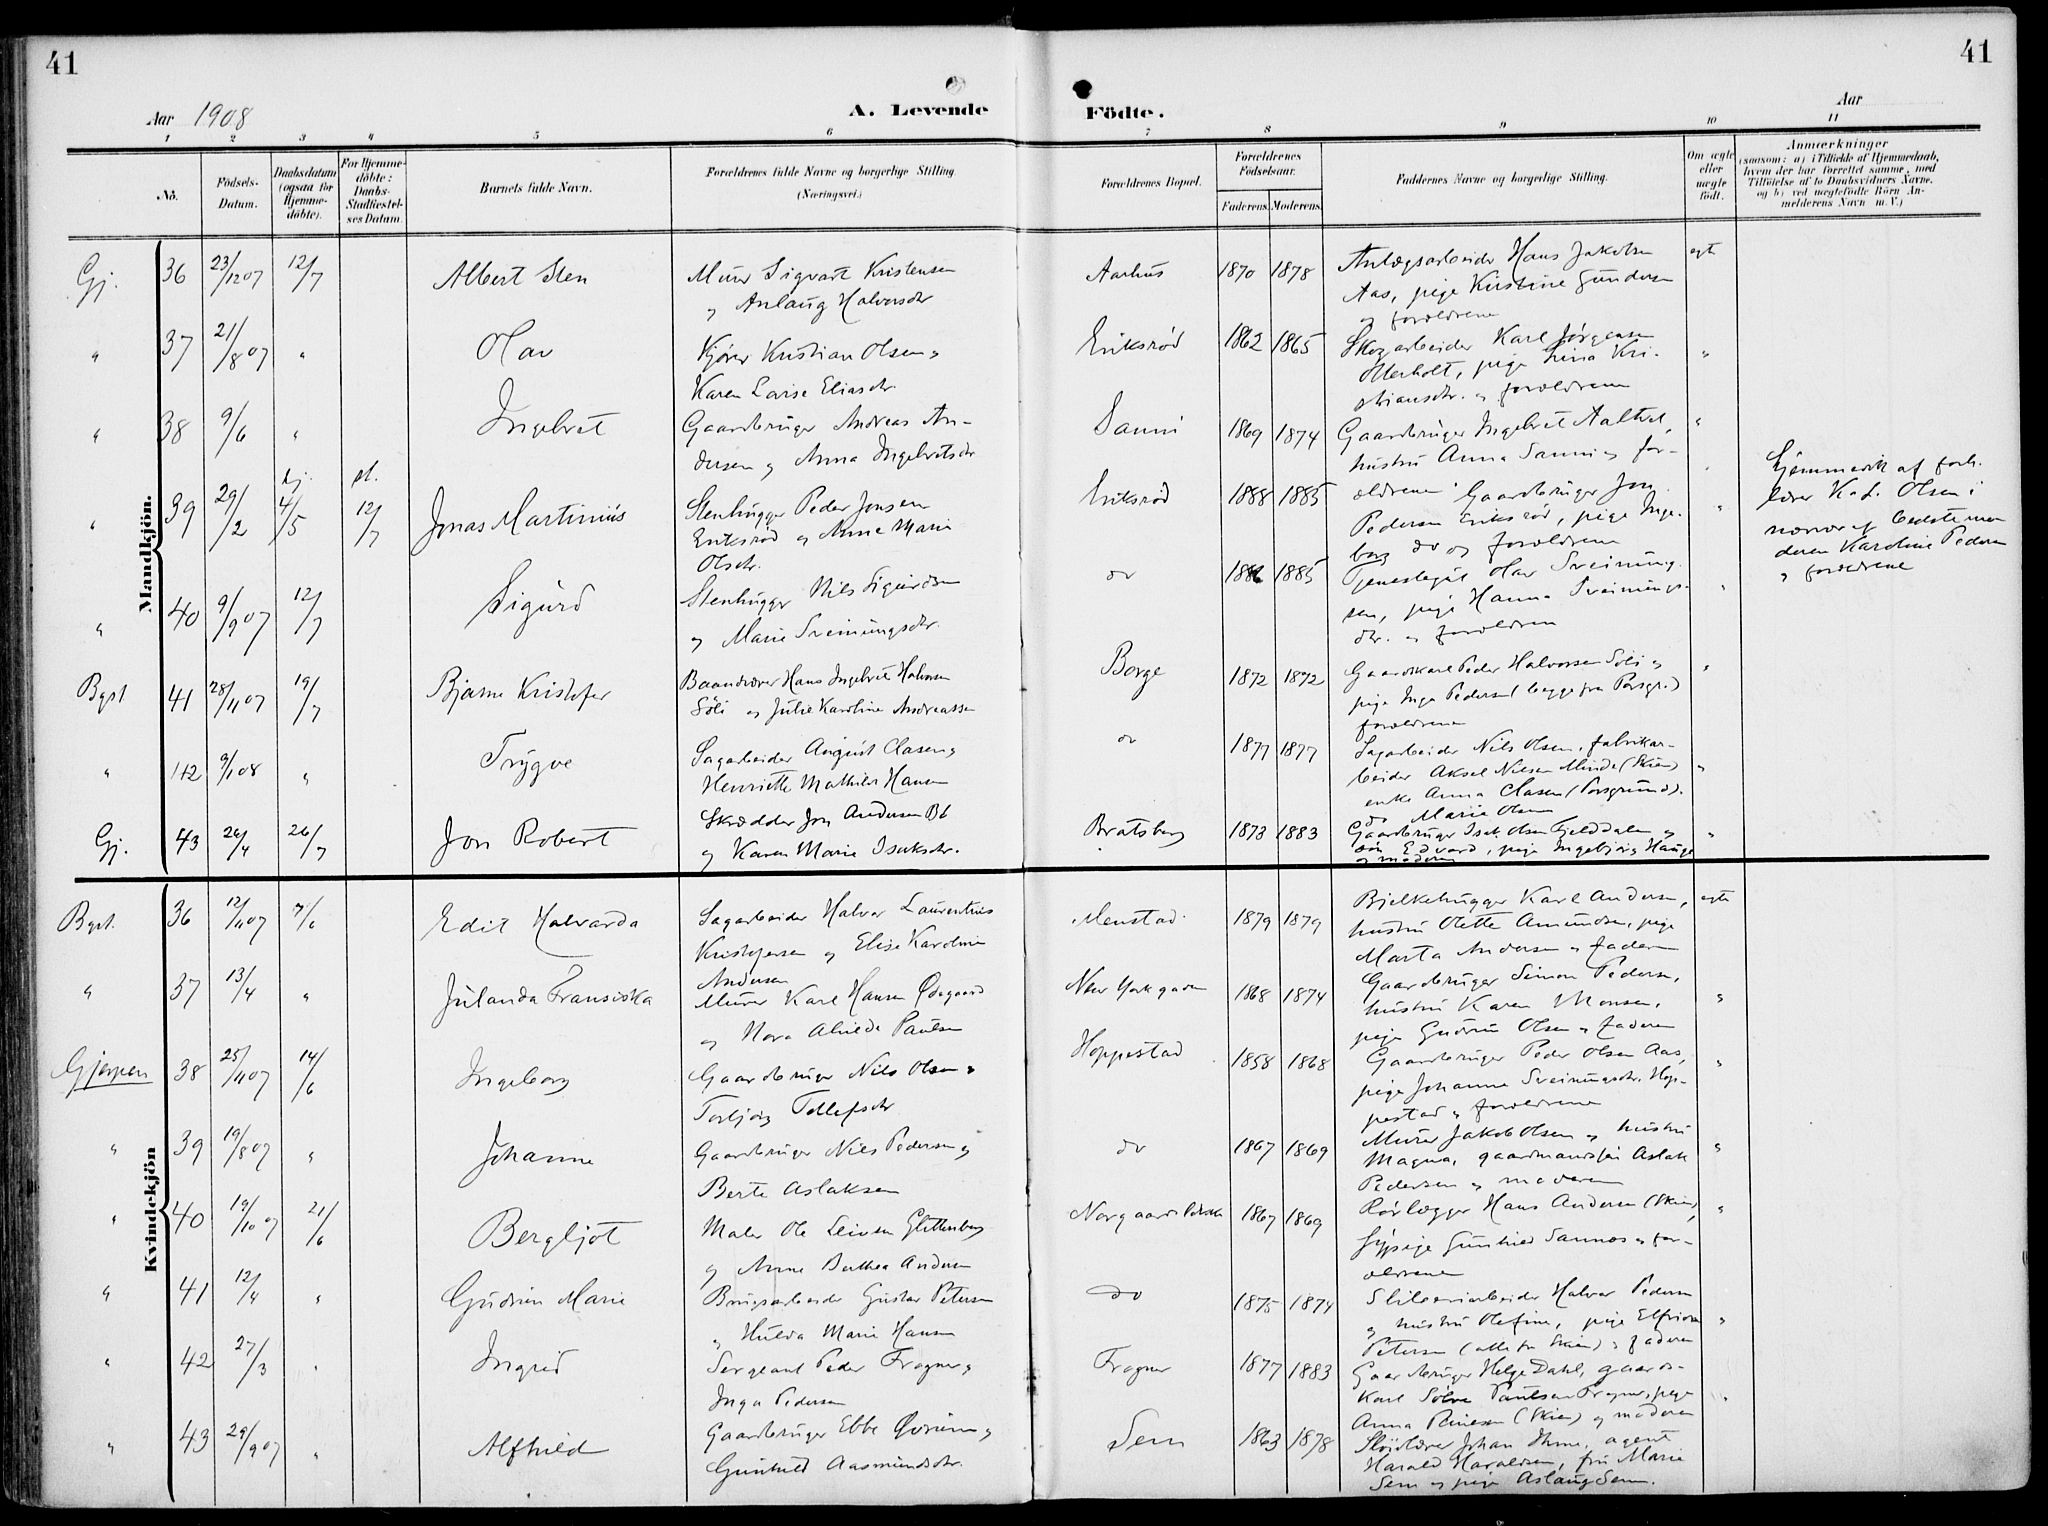 41
41
Aar 1908
A. Levende
Födte.
Aar
1 2 3 4 5 6 7 8 9 10 11
Nö.
Födsels-Datum.
Daabsdatum (ogsaa för Hjemme-döbte).
For Hjemme-döbte: Daabs-Stadfæstel-ses Datum.
Barnets fulde Navn.
Forældrenes fulde Navne og borgerlige Stilling (Næringsvei.)
Forældrenes Bopæl.
Forældrenes Födselsaar.
Faderens. Moderens.
Faddernes Navne og borgerlige Stilling.
Om ægte eller uægte födt.
Anmærkninger (saasom: a) i Tilfælde af Hjemmedaab, hvem der har forrettet samme, med Tilföielse af to Daabsvidners Navne. og b) ved uægtefödte Börn An-melderens Navn m. V.)
Mandkjön.
Gj. 36 23/12 07 12/7 Albert Sten
Murer Sigvart Kristensen
og Anlaug Halvorsdtr
Aarhus 1870 1878
Anlægsarbeider Hans Jakobsen
Aas, pige Kristine Gundersen
og forældrene
egt
" 37 21/8 07 " Olav
Kjører Kristian Olsen og
Karen Lovise Eliasdtr.
Eriksrød 1862 1865
Skogarbeider Karl Jørgensen
Otterholt, pige Lina Kri-
stiansdtr. og forældrene
"
" 38 9/6 " Ingebret
Gaardbruger Andreas An-
dersen og Anna Ingebretsdtr
Sanni 1869 1874
Gaardbruger Ingebret Aaltvet,
hustru Anna Sanni og for-
ældrene
"
" 39 29/2 hj. 4/5 st. 12/7 Jonas Martinius
Stenhugger Peder Jonsen
Eriksrød og Anne Marie
Olsdtr.
Eriksrød 1888 1885
Gaardbruger Jon
Pedersen Eriksrød, pige Inge-
borg do og forældrene
"
Hjemmedøbt af forh.
lærer K. L. Olsen i
nærvær af bedstemo
deren Karoline Pedersen
og forældrene
" 40 9/9 07 12/7 Sigurd
Stenhugger Nils Sigurdsen
og Marie Sveinungsdtr.
do 1886 1885
Tjenestegut Olav Sveinung-
sen, pige Hanna Sveinungs-
dtr. og forældrene
"
Bgst 41 28/11 07 19/7 Bjarne Kristofer
Baandværer Hans Ingebret Halvorsen
Söli og Julie Karoline Andreassen
Borge 1872 1872
Gaardkarl Peder Halvorsen Söli og
pige Inga Pedersen (begge fra Porsgr.)
forældrene
"
" 42 9/1 08 " Trygve
Sagarbeider August Clasen og
Henriette Mathilde Hansen
do 1877 1877
Sagarbeider Nils Olsen, fabrikar-
beider Aksel Nilsen Minde (Skien)
enke Anna Clasen (Porsgrund).
do Marie Olsen
"
Gj. 43 24/4 26/7 Jon Robert
Skrædder Jon Andersen Bö
og Karen Marie Isaksdtr.
Bratsberg 1873 1883
Gaardbruger Isak Olsen Fjelddalen og
sön Edvard, pige Ingebjørg Hauge
og moderen
"
Kvindekjön
Bgst. 36 12/11 07 7/6 Edit Halvarda
Sagarbeider Halvor Laurentius
Kristofersen og Elise Karoline
Andersen
Menstad 1879 1879
Bjelkehugger Karl Andersen,
hustru Olette Amundsen, pige
Marta Andersen og faderen
egte
" 37 13/4 " Julanda Fransiska
Murer Karl Hansen Ødegaard
og Nora Alvilda Paulsen
New York gaden 1868 1874
Gaardbruger Simon Pedersen,
hustru Karen Monsen,
pige Gudrun Olsen og faderen
"
Gjerpen 38 25/11 07 14/6 Ingeborg
Gaardbruger Nils Olsen og
Torbjørg Tollefsdtr
Hoppestad 1858 1868
Gaardbruger Peder Olsen Aas,
pige Johanne Sveinungsdtr. Hop-
pestad og forældrene
"
" 39 19/8 07 " Johanne
Gaardbruger Nils Pedersen og
Berte Aslaksen
do 1867 1869
Murer Jakob Olsen og hustru
Magna, gaardmandssøn Aslak
Pedersen og moderen
"
" 40 19/10 07 21/6 Bergljot
Maler Ole Seivesen Glittenberg
og Anne Berthea Andersen
Norgaard 1867 1869
Rørlægger Hans Andersen (Skien),
sypige Gunhild Sannæs og for-
ældrene
"
" 41 12/4 " Gudrun Marie
Brugsarbeider Gustav Petersen
og Hulda Marie Hansen
do 1875 1874
Sliberiarbeider Halvor Pedersen
og hustru Olefine, pige Elfrida
Petersen (alle fra Skien) og faderen
"
" 42 27/3 " Ingrid
Sergeant Peder Frogner og
Inga Pedersen
Frogner 1877 1883
Gaardbruger Helge Dahl, gaards-
karl Sölve Paulsen Frogner, pige
Anna (Skien) og moderen
"
" 43 29/9 07 " Alfhild
Gaardbruger Ebbe Qvrum og
Gunhild Aasmundsdtr.
Sem 1863 1878
Sløidlærer Johan Ihme, agent
Harald Haraldsen, fru Marie
Sem og pige Aslaug Sem.